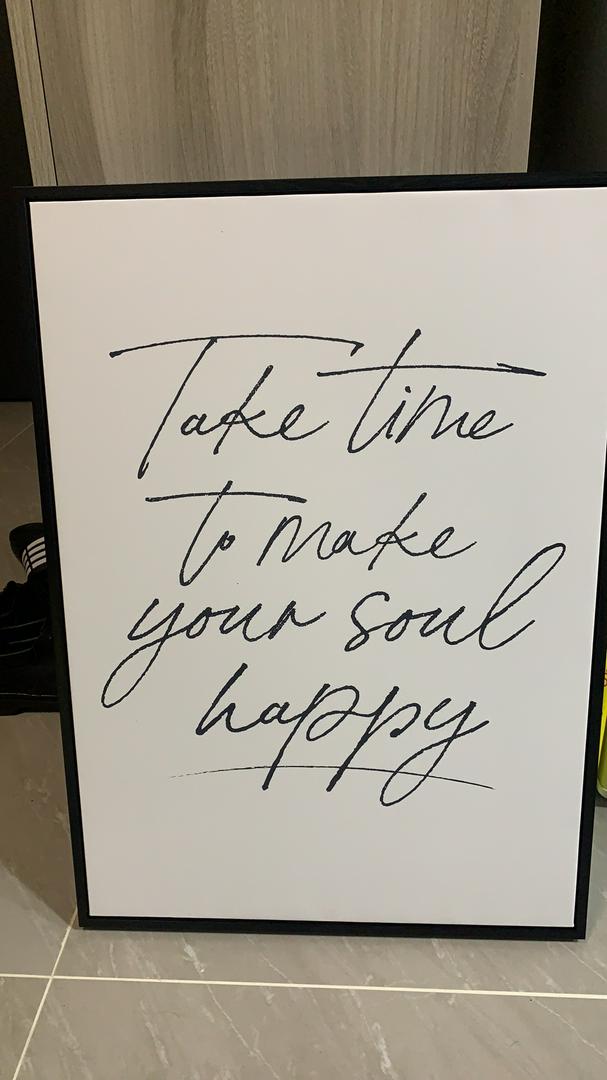 Take time
to make
your soul
happy